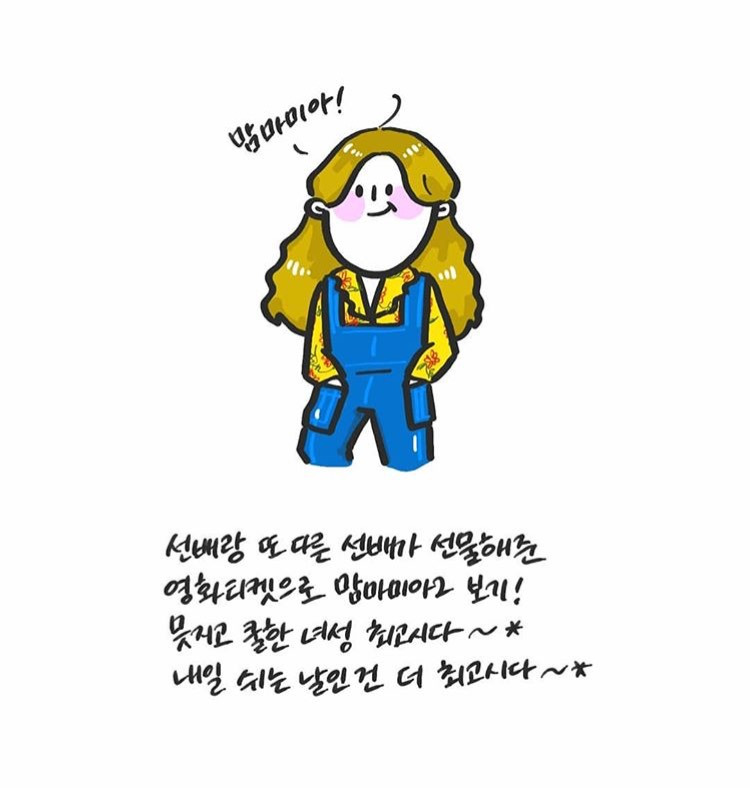 맘마미아!
선배랑 또 다른 선배가 선물해준
영화티켓으로 맘마미아2 보기!
믓지고 쿨한 녀성 최고시다~*
내일 쉬는 날인 건 더 최고시다~*